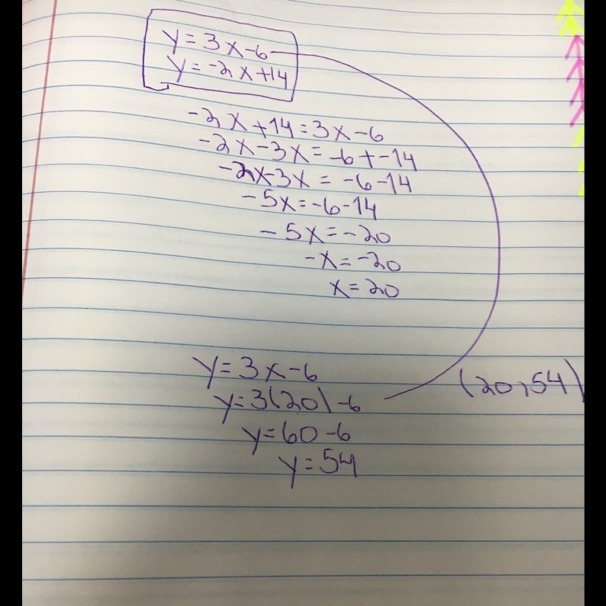 y=3x-6
y=-2x+14
-2x+14=3x-6
-2x-3x=-6+-14
-2x-3x=-6-14
-5x=-6-14
-5x=-20
-x=-20
x=20
y=3x-6
y=3(20)-6
(20,54)
y=60-6
y=54